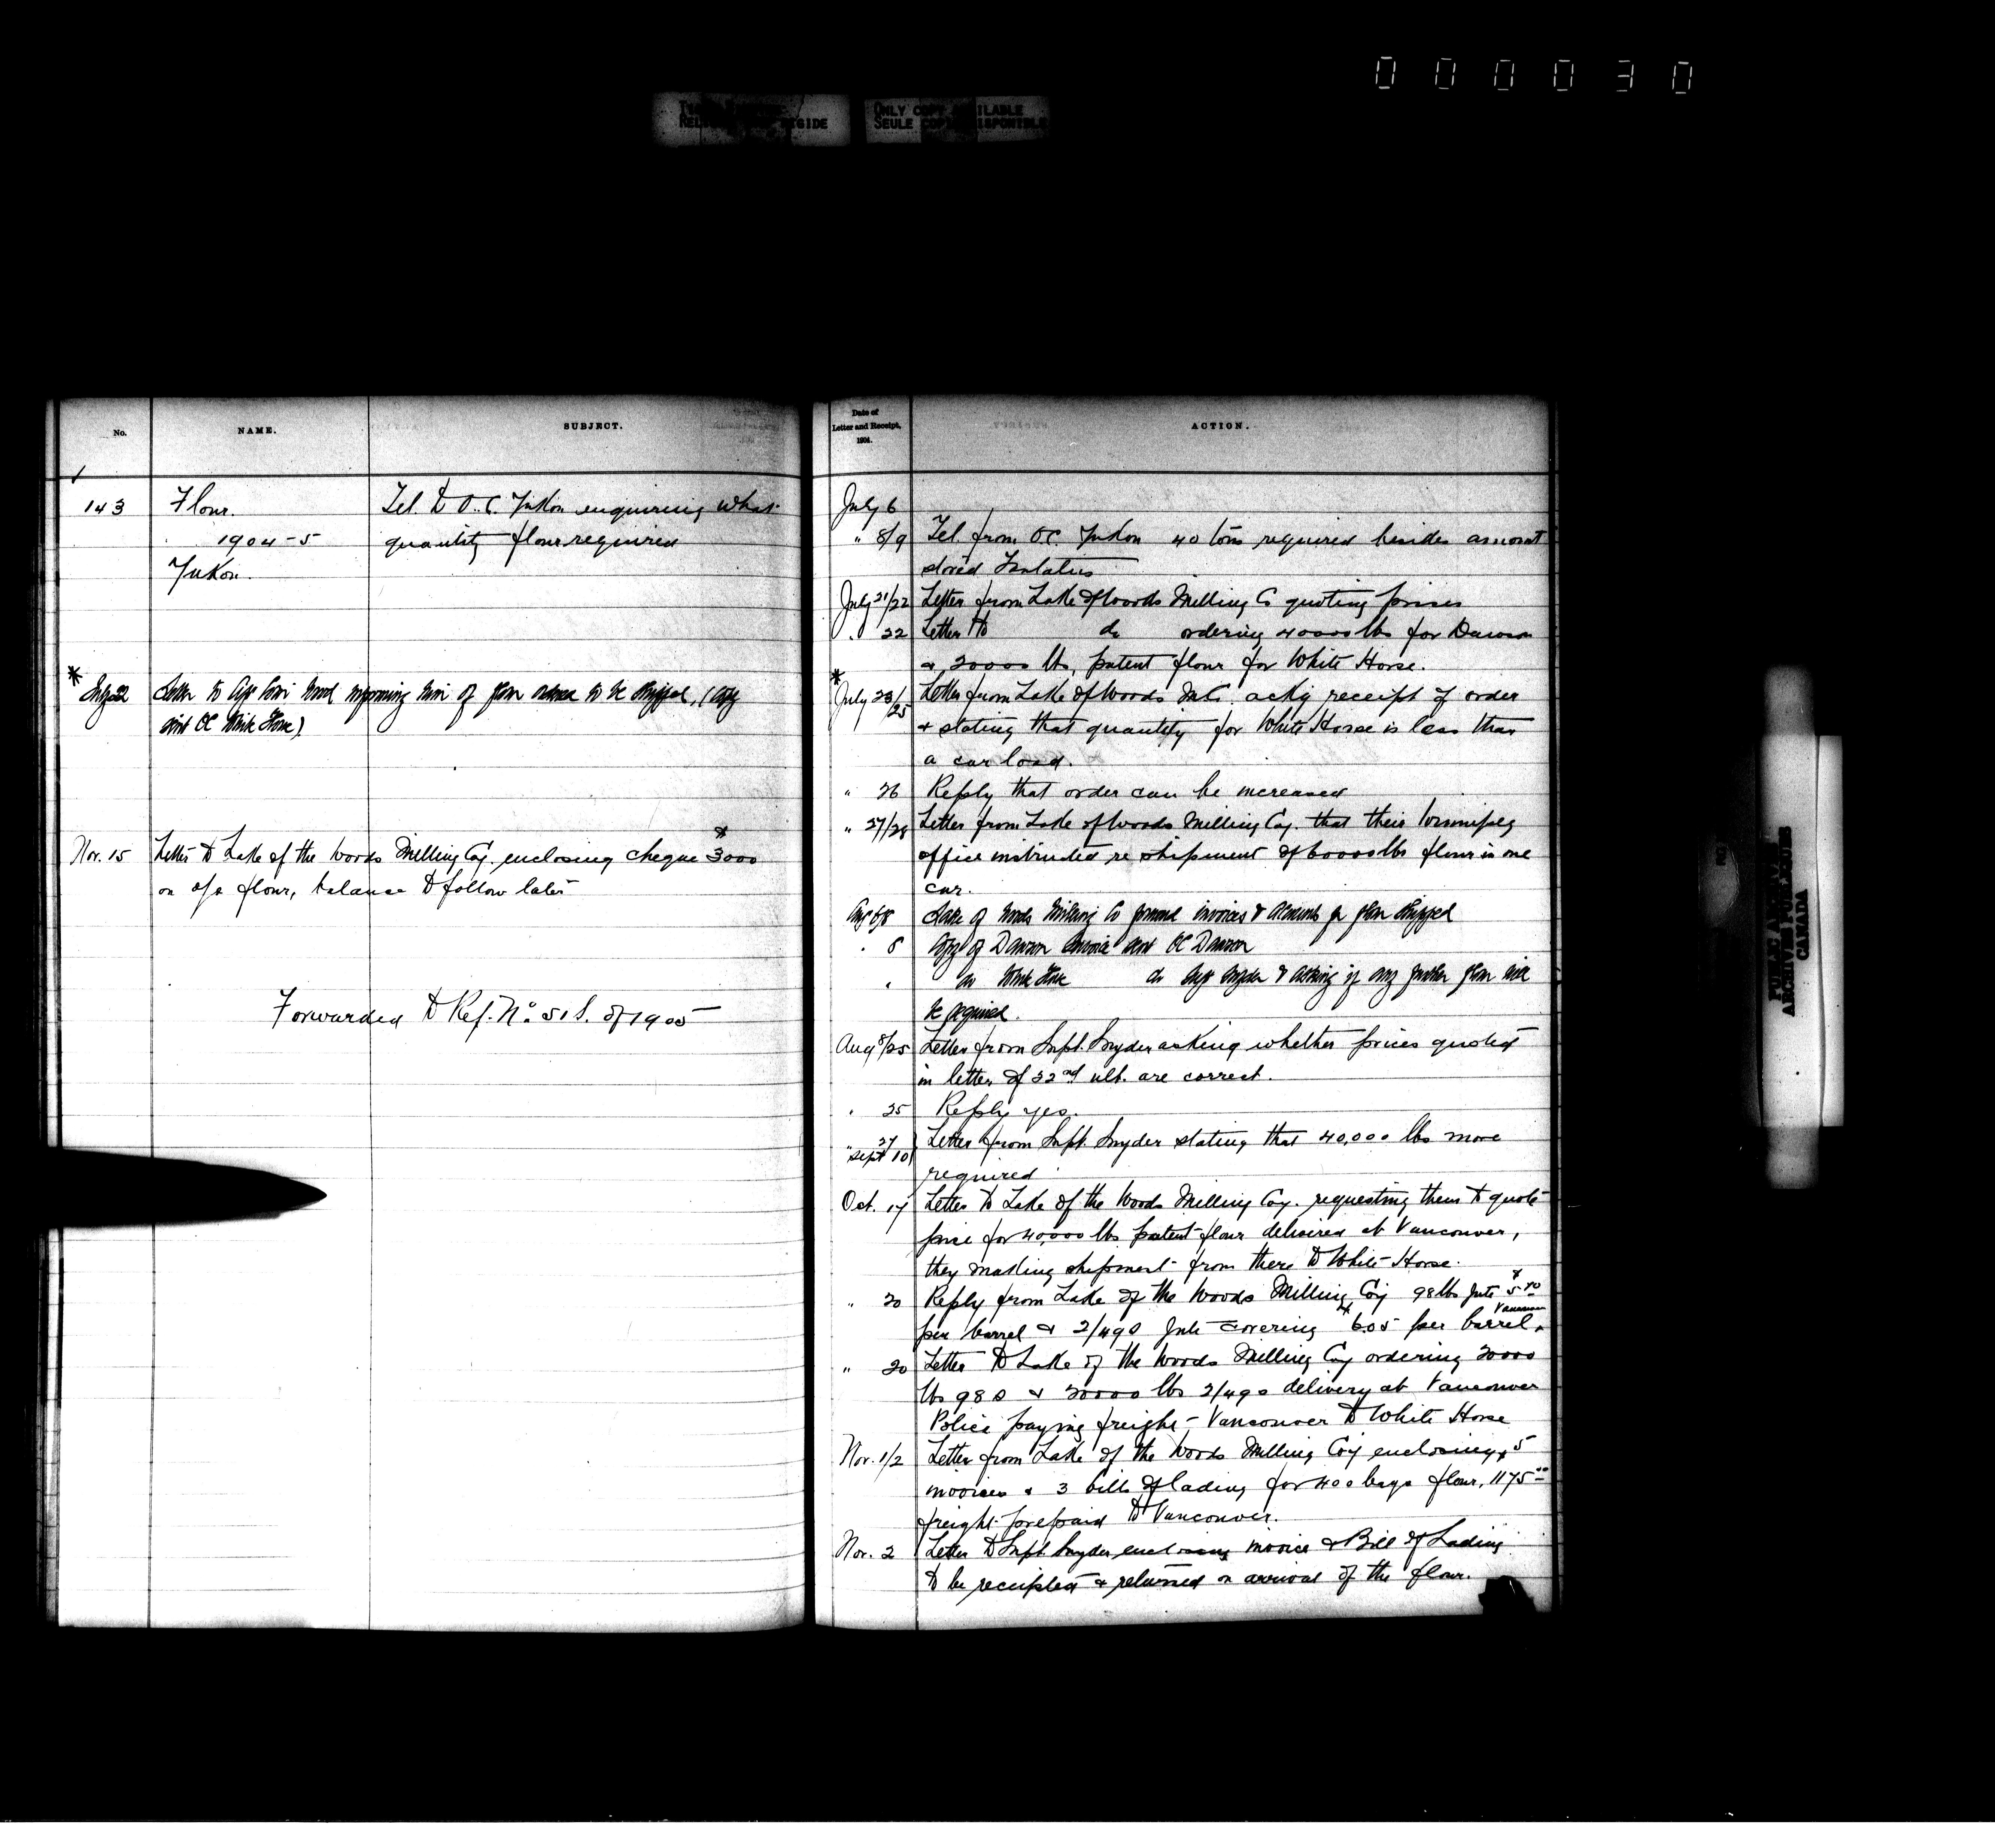 000030
ONLY COPY AVAILABLE
SEULE COPIE DISPONIBLE
No.
NAME.
SUBJECT.
143
Flour.
Tel. to O.C. Yukon enquiring what
1904-5
quantity flour required
Yukon.
* July 22
Letter to
of flour ordered to be shipped, (Copy
sent OC White Horse)
Nov. 15
Letter to Lake of the Woods Milling Coy. enclosing cheque $3000
on a/c flour, balance to follow later
Forwarded to Ref. No. 51 S. of 1905
Date of
Letter and Receipt,
1904.
ACTION.
July 6
" 8/9 Tel. from O.C. Yukon 40 tons required besides amount
stored
July 21/22 Letter from Lake of Woods Milling Co quoting prices
" 22 Letter to do ordering 40000 lbs for Dawson
& 20000 lbs. patent flour for White Horse.
* July 23/25 Letter from Lake of Woods M.C. ackg receipt of order
& stating that quantity for White Horse is less than
a car load.
" 26 Reply that order can be increased
" 27/28 Letter from Lake of Woods Milling Coy. that their Winnipeg
office instructed re shipment of 60000 lbs flour in one
car.
Aug 6/8 Lake of Woods Milling Co forward invoices & accounts for flour shipped
" 8 Copy of Dawson invoice sent OC Dawson
" do White Horse do Supt Snyder & asking if any further flour will
be required.
Aug 8/25 Letter from Supt. Snyder asking whether prices quoted
in letter of 22nd ult. are correct.
" 25 Reply yes.
" 27
Sept 10 Letter from Supt. Snyder stating that 40,000 lbs more
required
Oct. 17 Letter to Lake of the Woods Milling Coy. requesting them to quote
price for 40,000 lbs patent flour delivered at Vancouver,
they making shipment from there to White Horse.
" 20 Reply from Lake of the Woods Milling Coy 98 lbs Jute $5
per barrel & 2/49s Jute covering $6.05 per barrel Vancouver
" 20 Letter to Lake of the Woods Milling Coy ordering 20000
lbs 98s & 20000 lbs 2/49s delivery at Vancouver
Police paying freight Vancouver to White Horse
Nov. 1/2 Letter from Lake of the Woods Milling Coy enclosing 5
invoices & 3 bills of lading for 400 bags flour, $1175.00
freight prepaid to Vancouver.
Nov. 2 Letter to Supt. Snyder enclosing invoice & Bill of Lading
to be receipted & returned on arrival of the flour.
PUBLIC ARCHIVES
ARCHIVES PUBLIQUES
CANADA